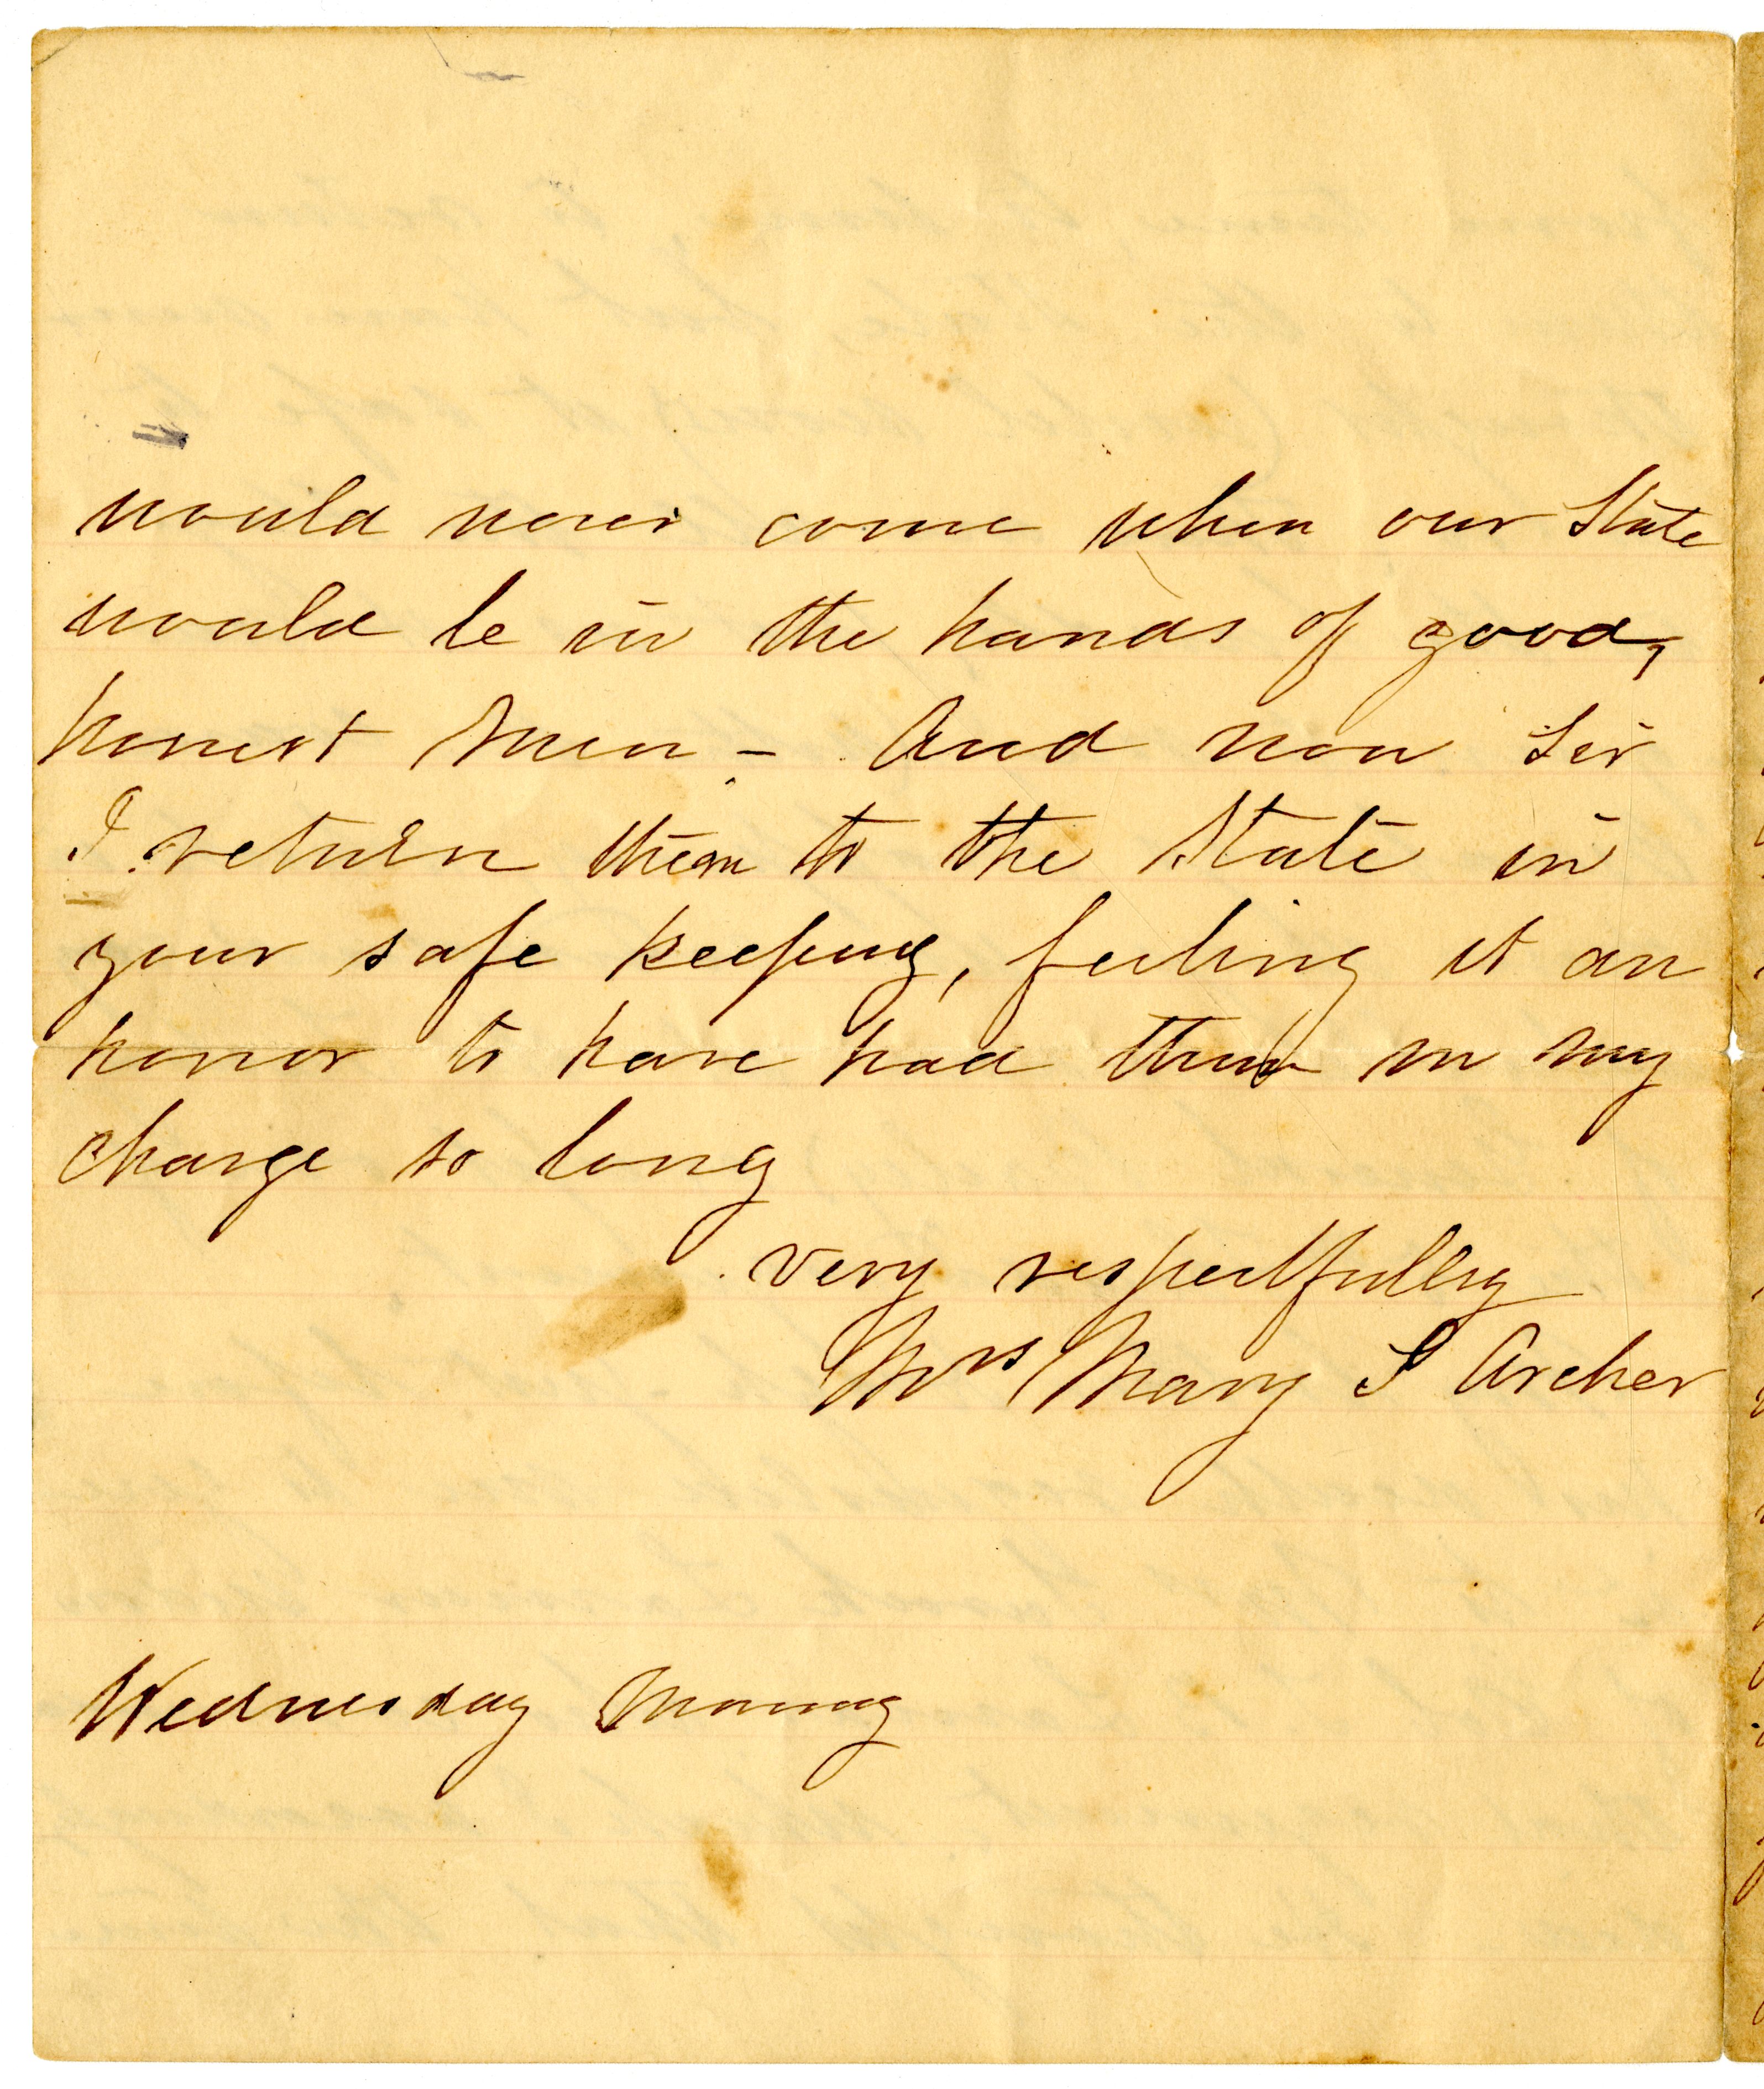 would never come when our State
would be in the hands of good,
honest men - And now Sir
I return them to the State in
your safe keeping, feeling it an
honor to have had them in my
charge so long
very respectfully
Mrs Mary S Archer
Wednesday Morning